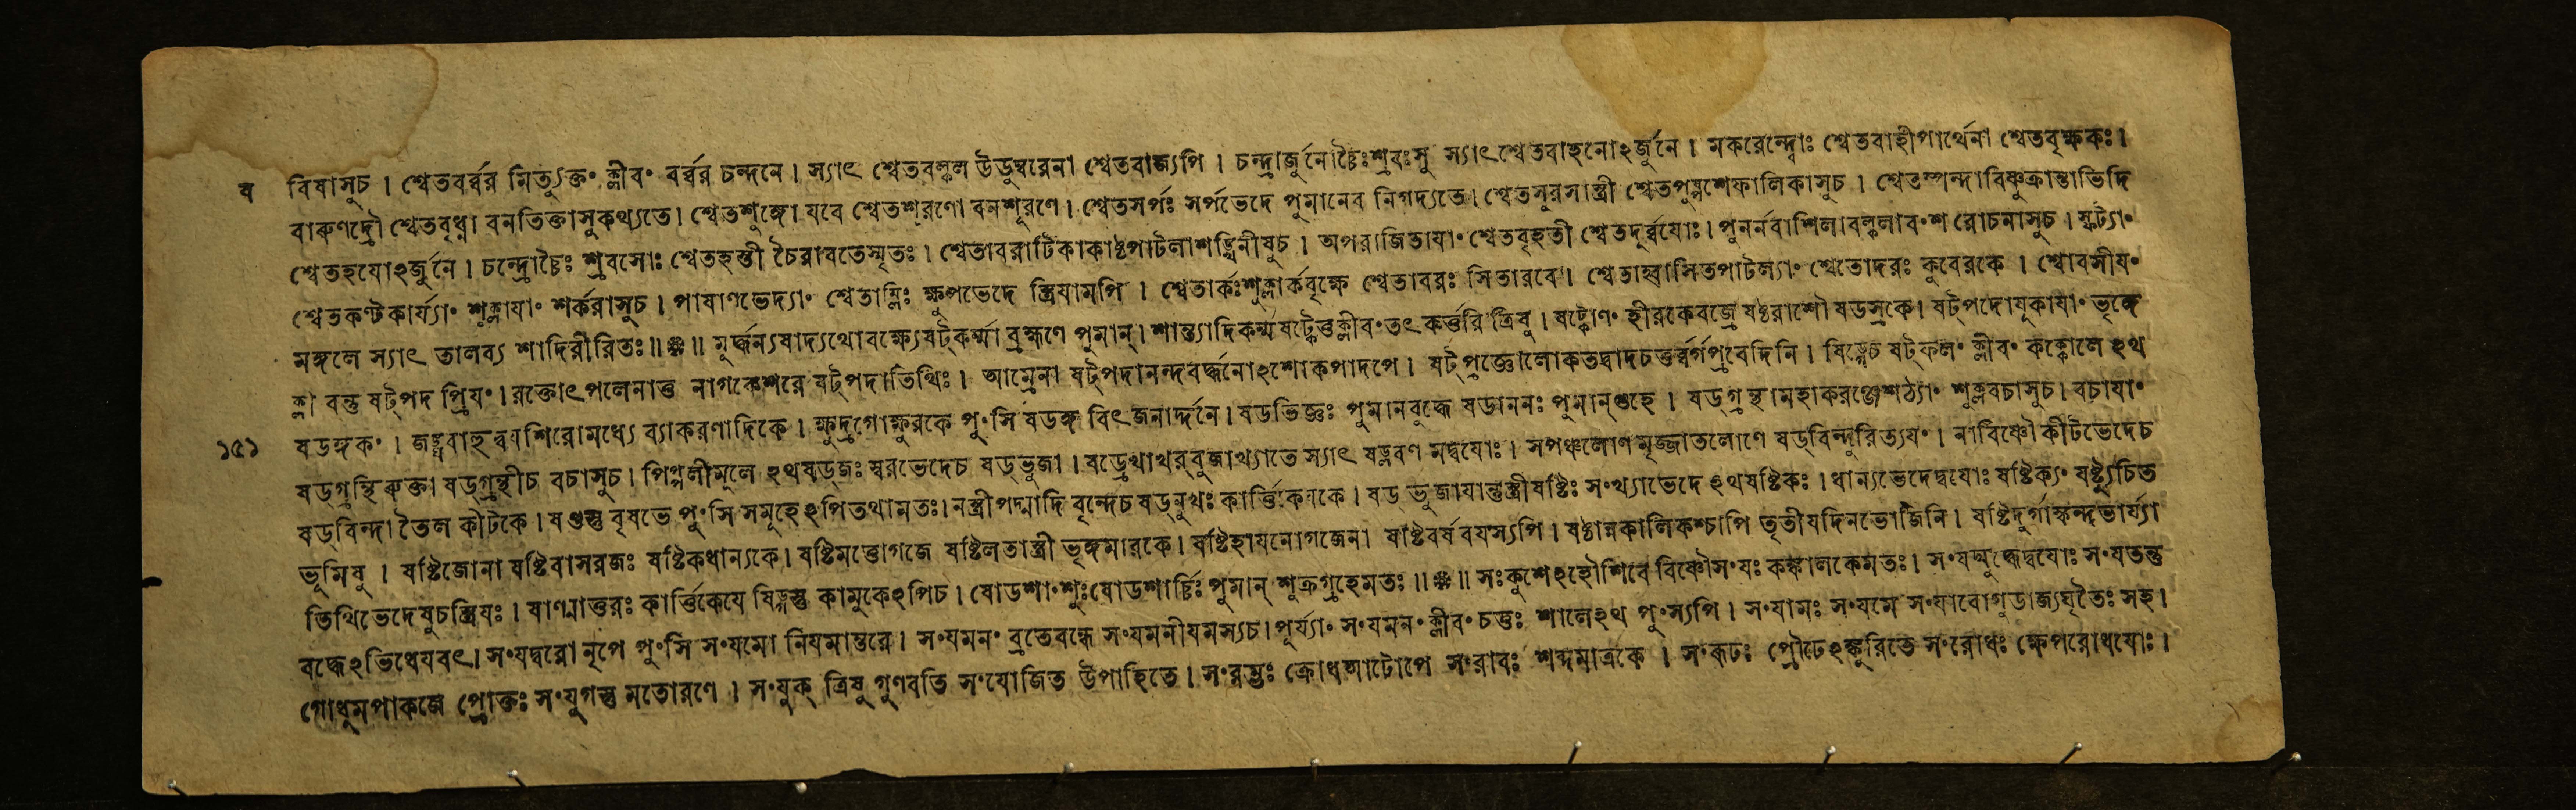 ষ বিষাসুচ । শ্বেতবর্ব্বর মিত্যুক্তং ক্লীবং বর্ব্বর চন্দনে । স্যাৎ শ্বেতবল্কল উডুম্বরেনা শ্বেতবাজ্যপি । চন্দ্রার্জুনোচ্চৈঃশ্রবঃসু স্যাৎশ্বেতবাহনোঽর্জুনে । মকরেন্দ্বোঃ শ্বেতবাহীপার্থেনা শ্বেতবৃক্ষকঃ ।
বারুণদ্রৌ শ্বেতবৃধ্না বনতিক্তাসুকথ্যতে । শ্বেতশুঙ্গো যবে শ্বেতশূরণো বনশূরণে । শ্বেতসর্পঃ সর্পভেদে পুমানেব নিগদ্যতে । শ্বেতসুরসাস্ত্রী শ্বেতপুষ্পশেফালিকাসুচ । শ্বেতস্পন্দাবিষ্ণুক্রান্তাভিদি
শ্বেতহযোঽর্জুনে । চন্দ্রোচ্চৈঃ শ্রবসোঃ শ্বেতহস্তী চৈরাবতেস্মৃতঃ । শ্বেতাবরাটিকাকাষ্টপাটলাশঙ্খিনীষুচ । অপরাজিতাযাং শ্বেতবৃহতী শ্বেতদূর্ব্বযোঃ । পুনর্নবাশিলাবল্কলাবংশ রোচনাসুচ । স্ফট্যাং
শ্বেতকণ্টকার্য্যাং শুক্লাযাং শর্করাসুচ । পাষাণভেদ্যাং শ্বেতাম্লিঃ ক্ষুপভেদে স্ত্রিযামপি । শ্বেতার্কঃশুক্লার্কবৃক্ষে শ্বেতাবরঃ সিতারবে । শ্বেতাহ্বাসিতপাটল্যাং শ্বেতোদরঃ কুবেরকে । শ্বোবসীযং
মঙ্গলে স্যাৎ তালব্য শাদিরীরিতঃ ॥ ॥ মূর্দ্ধন্যষাদ্যথোবক্ষ্যেষট্কর্ম্মা ব্রহ্মণে পুমান্ । শান্ত্যাদিকর্ম্মষট্কেত্তক্লীবংতৎ কর্ত্তরি ত্রিষু । ষট্কোণং হীরকেবজ্রে ষষ্ঠরাশৌ ষডস্রকে । ষট্পদোযুকাযাং ভৃঙ্গে
ক্লী বন্তু ষট্পদ প্রিযং । রক্তোৎপলেনাত্ত নাগকেশরে ষট্পদাতিথিঃ । আম্রেনা ষট্পদানন্দবর্দ্ধনোঽশোকপাদপে । ষট্প্রজ্ঞোলোকতত্বাদচত্তুর্ব্বর্গপ্রবেদিনি । ষিড্গেচ ষট্ফলং ক্লীবং কক্কোলে ঽথ
১৫১ ষডঙ্গকং । জঙ্ঘাবাহুদ্বযশিরোমধ্যে ব্যাকরণাদিকে । ক্ষুদ্রগোক্ষুরকে পুংসি ষডঙ্গ বিৎজনার্দ্দনে । ষডভিজ্ঞঃ পুমানবুদ্ধে ষডাননঃ পুমান্গুহে । ষড্গ্রন্থামহাকরঞ্জেশঠ্যাং শুক্লবচাসুচ । বচাযাং
ষড্গ্রন্থি রুক্তা ষড্গ্রন্থীচ বচাসুচ । পিপ্পলীমূলে ঽথষড্জঃ স্বরভেদেচ ষড্ভুজা । ষড্রেখাখর্বুজাখ্যাতে স্যাৎ ষড্লবণ মদ্বযোঃ । সপঞ্চলোণমৃজ্জাতলোণে ষড্বিন্দুরিত্যযং । নাবিষ্ণৌকীটভেদেচ
ষড্বিন্দা তৈল কীটকে । ষণ্ডস্তু বৃষভে পুংসি সমূহেঽপিতথামতঃ । নস্ত্রীপদ্মাদি বৃন্দেচ ষড্মুখঃ কার্ত্তিকেযকে । ষড ভুজাযান্তুস্ত্রীষষ্টিঃ সংখ্যাভেদে ঽথষষ্টিকঃ । ধান্যভেদেদ্বযোঃ ষষ্টিক্যং ষষ্ট্যুচিত
ভূমিষু । ষষ্টিজোনা ষষ্টিবাসরজঃ ষষ্টিকধান্যকে । ষষ্টিমত্তোগজে ষষ্টিলতাস্ত্রী ভৃঙ্গমারকে । ষষ্টিহাযনোগজেনা ষষ্টিবর্ষ বযস্যপি । ষষ্ঠান্নকালিকশ্চাপি তৃতীযদিনভোজিনি । ষষ্টিদুর্গাস্কন্দভার্য্যা
তিথিভেদেষুচস্ত্রিযঃ । ষাণ্মাত্তরঃ কার্ত্তিকেযে ষিড্গস্তু কামুকেঽপিচ । ষোডশাংশুঃষোডশার্চ্চিঃ পুমান্ শুক্রগ্রহেমতঃ ॥ ॥ সঃকুশেঽহৌশিবে বিষ্ণৌসংযঃ কঙ্কালকেমতঃ । সংযদ্যুদ্ধেদ্বযোঃ সংযতন্তু
বদ্ধেঽভিধেযবৎ । সংযদ্বরো নৃপে পুংসি সংযমো নিযমান্তরে । সংযমনং ব্রতেবন্ধে সংযমনীযমস্যচ । পূর্য্যাং সংযমনং ক্লীবং চত্তুঃ শালেঽথ পুংস্যপি । সংযামঃ সংযমে সংযাবোগুডাজ্যঘৃতৈঃ সহ ।
গোধূমপাকজে প্রোক্তঃ সংযুগস্তু মতোরণে । সংযুক্ ত্রিষু গুণবতি সংযোজিত উপাহিতে । সংরম্ভঃ ক্রোধআটোপে সংরাবঃ শব্দমাত্রকে । সংরূঢঃ প্রৌঢেঽঙ্কুরিতে সংরোধঃ ক্ষেপরোধযোঃ ।